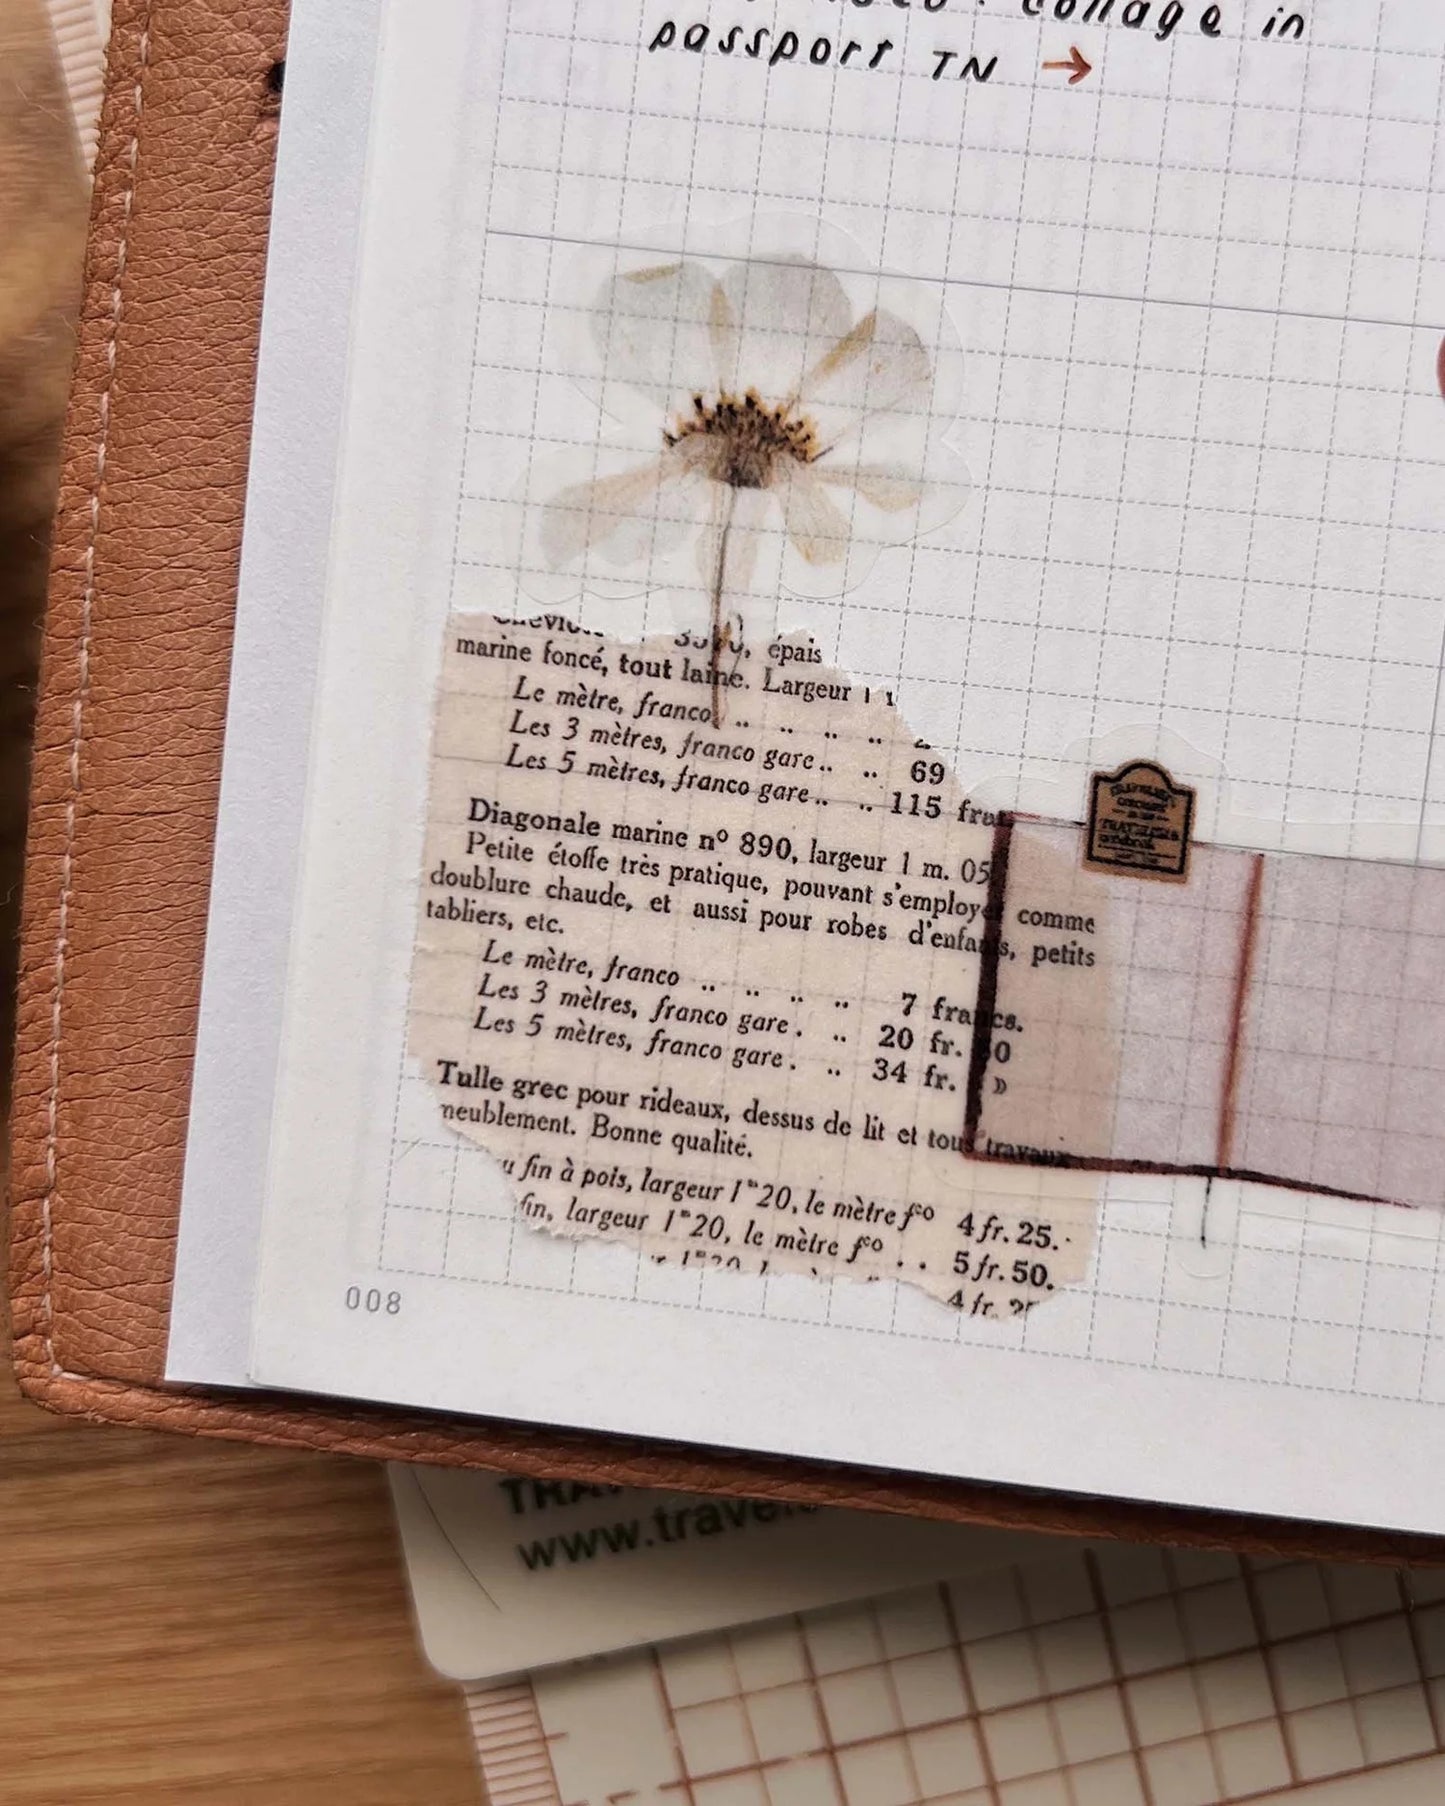 collage in
passport TN →
épais
marine foncé, tout laine. Largeur 1
Le mètre, franco .. .. .. ..
Les 3 mètres, franco gare .. .. 69
Les 5 mètres, franco gare .. .. 115
Diagonale marine nº 890, largeur 1 m. 05
Petite étoffe très pratique, pouvant s'employer comme
doublure chaude, et aussi pour robes d'enfants, petits
tabliers, etc.
Le mètre, franco .. .. .. .. 7 francs.
Les 3 mètres, franco gare . .. 20 fr.
Les 5 mètres, franco gare . .. 34 fr. »
Tulle grec pour rideaux, dessus de lit et tous travaux
meublement. Bonne qualité.
fin à pois, largeur 1ᵐ20, le mètre fᶜᵒ 4 fr. 25.
fin, largeur 1ᵐ20, le mètre fᶜᵒ . . 5 fr. 50.
4 fr.
008